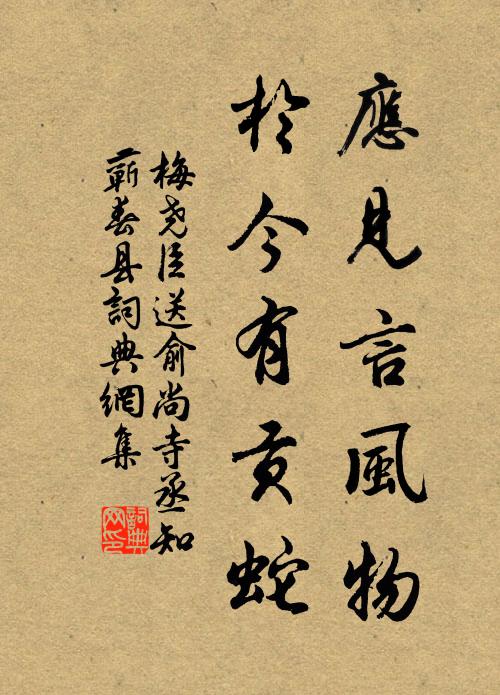 應見言風物
於今有貢蛇
梅堯臣送俞尚寺丞知
蘄春县詞典網集
詞典網印